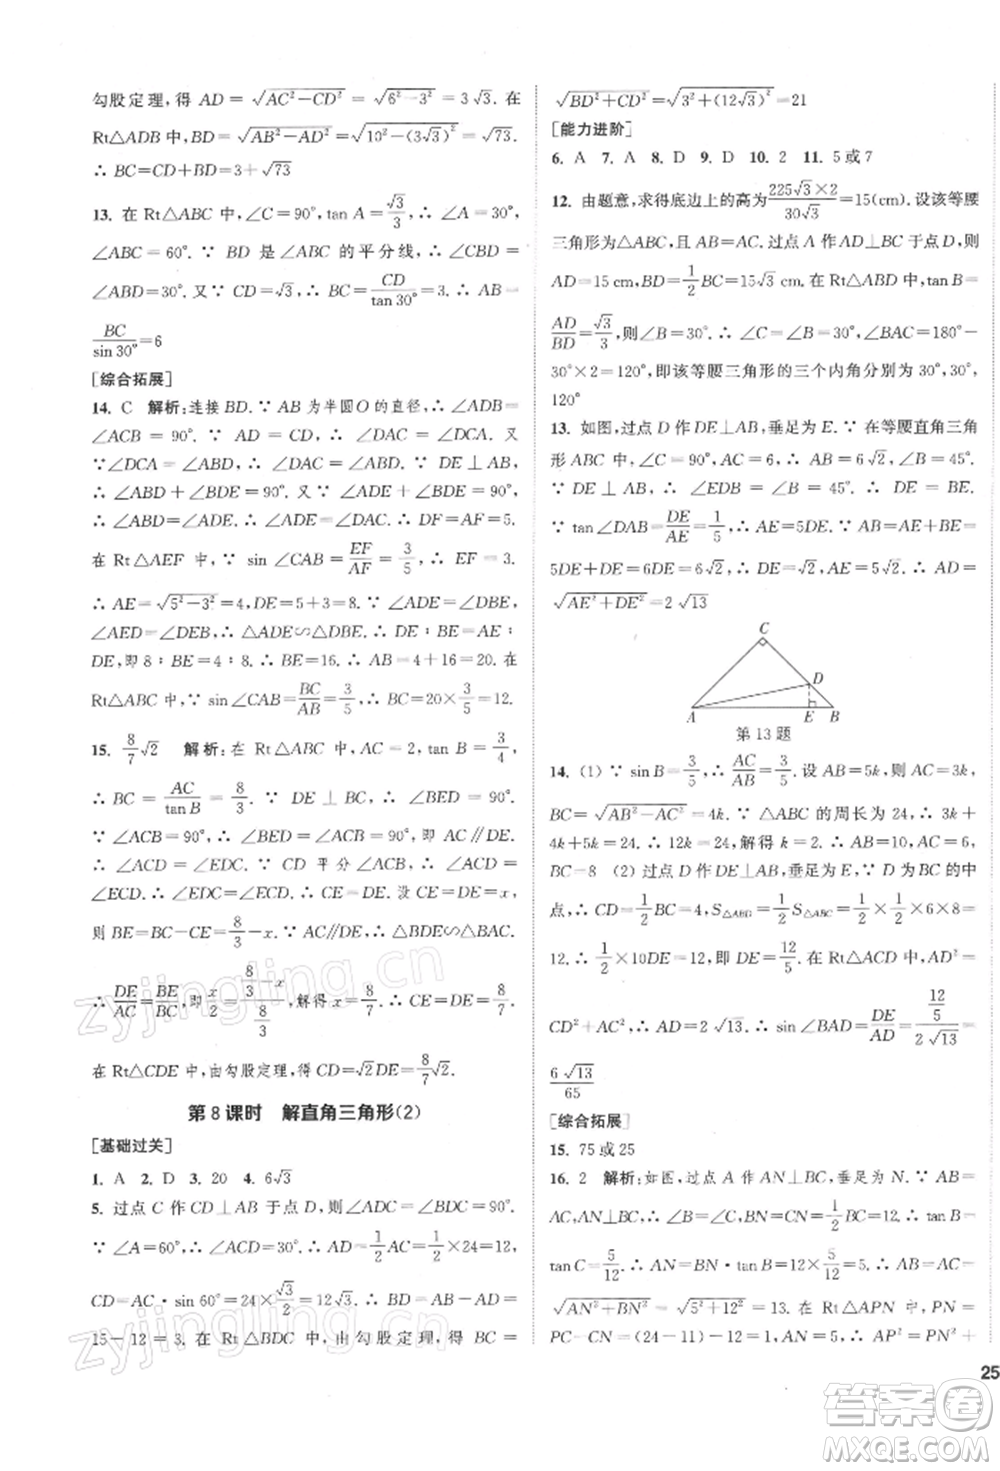 勾股定理,得 AD = √(AC²−CD²) = √(6²−3²) = 3√3. 在
Rt△ADB 中,BD = √(AB²−AD²) = √(10²−(3√3)²) = √73.
∴ BC = CD + √73
13. 在 Rt△ABC 中,∠C = 90°, tan A = √3/3, ∴ ∠A = 30°,
∠ABC = 60°. ∵ BD 是∠ABC 的平分线, ∴ ∠CBD =
∠ABD=30°. 又∵ CD=√3, ∴ BC= CD/tan30° =3. ∴ AB=
BC/sin 30° =6
[综合拓展]
14. C 解析:连接 BD. ∵ AB 为半圆 O 的直径, ∴ ∠ADB =
∠ACB = 90°. ∵ AD = CD, ∴ ∠DAC = ∠DCA. 又
∵ ∠DCA = ∠ABD, ∴ ∠DAC = ∠ABD. ∵ DE⊥AB,
∴ ∠ABD + ∠BDE = 90°. 又∵ ∠ADE + ∠BDE = 90°,
∴ ∠ABD=∠ADE. ∴ ∠ADE=∠DAC. ∴ DF=AF=5.
在 Rt△AEF 中, ∵ sin ∠CAB = EF/AF = 3/5, ∴ EF = 3.
∴ AE=√(5²−3²)=4,DE=5+3=8. ∵ ∠ADE=∠DBE,
∠AED = ∠DEB, ∴ △ADE∽△DBE. ∴ DE : BE = AE :
DE,即 8 : BE=4 : 8. ∴ BE=16. ∴ AB=4+16=20. 在
Rt△ABC 中, ∵ sin∠CAB= BC/AB = 3/5, ∴ BC=20× 3/5 =12.
15. 8/7 √2 解析:在 Rt△ABC 中,AC = 2, tan B = 3/4,
∴ BC = AC/tan B = 8/3. ∵ DE⊥BC, ∴ ∠BED = 90°.
∵ ∠ACB = 90°, ∴ ∠BED = ∠ACB = 90°,即 AC∥DE.
∴ ∠ACD = ∠CDE. ∵ CD 平分∠ACB, ∴ ∠ACD =
∠ECD. ∴ ∠ECD=∠CDE. ∴ CE=DE. 设 CE=DE=x,
则 BE=BC−CE= 8/3 −x. ∵ AC∥DE, ∴ △BDE∽△BAC.
∴ DE/AC = BE/BC,即 x/2 = (8/3−x)/(8/3),解得 x= 8/7. ∴ CE=DE= 8/7.
在 Rt△CDE 中,由勾股定理,得 CD= 8/7 √2.
第 8 课时 解直角三角形(2)
[基础过关]
1. A 2. D 3. 20 4. 6√3
5. 过点 C 作 CD⊥AB 于点 D,则∠ADC=∠BDC=90°.
∵ ∠A=60°, ∴ ∠ACD=30°. ∴ AD= 1/2 AC= 1/2 ×24=12,
CD=AC·sin 60°=24× √3/2 =12√3. ∴ BD=AB−AD=
15−12=3. 在 Rt△BDC 中,由勾股定理,得 BC =
√(BD²+CD²) = √(3²+(12√3)²) =21
[能力进阶]
6. A 7. A 8. D 9. D 10. 2 11. 5 或 7
12. 由题意,求得底边上的高为 225√3×2/30√3 =15(cm). 设该等腰
三角形为△ABC,且 AB=AC. 过点 A 作 AD⊥BC 于点 D,则
AD=15 cm,BD= 1/2 BC=15√3 cm. 在 Rt△ABD 中,tan B=
AD/BD = √3/3,则∠B=30°. ∴ ∠C = ∠B=30°,∠BAC=180°−
30°×2=120°,即该等腰三角形的三个内角分别为 30°,30°,
120°
13. 如图,过点 D 作 DE⊥AB,垂足为 E. ∵ 在等腰直角三角
形 ABC 中,∠C = 90°,AC = 6, ∴ AB = 6√2,∠B = 45°.
∵ DE⊥AB, ∴ ∠EDB = ∠B = 45°. ∴ DE = BE.
∵ tan∠DAB= DE/AE = 1/5, ∴ AE=5DE. ∴ AB=AE+BE=
5DE+DE=6DE=6√2. ∴ DE=√2,AE=5√2. ∴ AD=
√(AE²+DE²) =2√13
C
D
A E B
第 13 题
14. (1) ∵ sinB= 3/5, ∴ AC/AB = 3/5. 设 AB=5k,则 AC=3k,
BC=√(AB²−AC²)=4k. ∵ △ABC 的周长为 24, ∴ 3k+
4k+5k=24. ∴ 12k=24,解得 k=2. ∴ AB=10,AC=6,
BC=8 (2) 过点 D 作 DE⊥AB,垂足为 E. ∵ D 为 BC 的中
点, ∴ CD= 1/2 BC=4,S△ABD= 1/2 S△ABC= 1/2 × 1/2 ×6×8=
12. ∴ 1/2 ×10DE=12,即 DE= 12/5. 在 Rt△ACD 中,AD²=
CD²+AC², ∴ AD=2√13. ∴ sin∠BAD= DE/AD = (12/5)/(2√13) =
6√13/65
[综合拓展]
15. 75 或 25
16. 2 解析:过点 A 作 AN⊥BC,垂足为 N. ∵ AB =
AC, ∴ ∠B=∠C,BN=CN= 1/2 BC=12. ∴ tan B=
tan C= 5/12. ∴ AN=BN·tan B=12× 5/12 =5. ∴ AC=
√(AN²+BN²) = √(5²+12²) =13. 在 Rt△APN 中,PN=
PC−CN=(24−11)−12=1. ∴ AP²=PN²+
25
zyjingling.cn
zyjingling.cn
答案卷
MXQE.COM